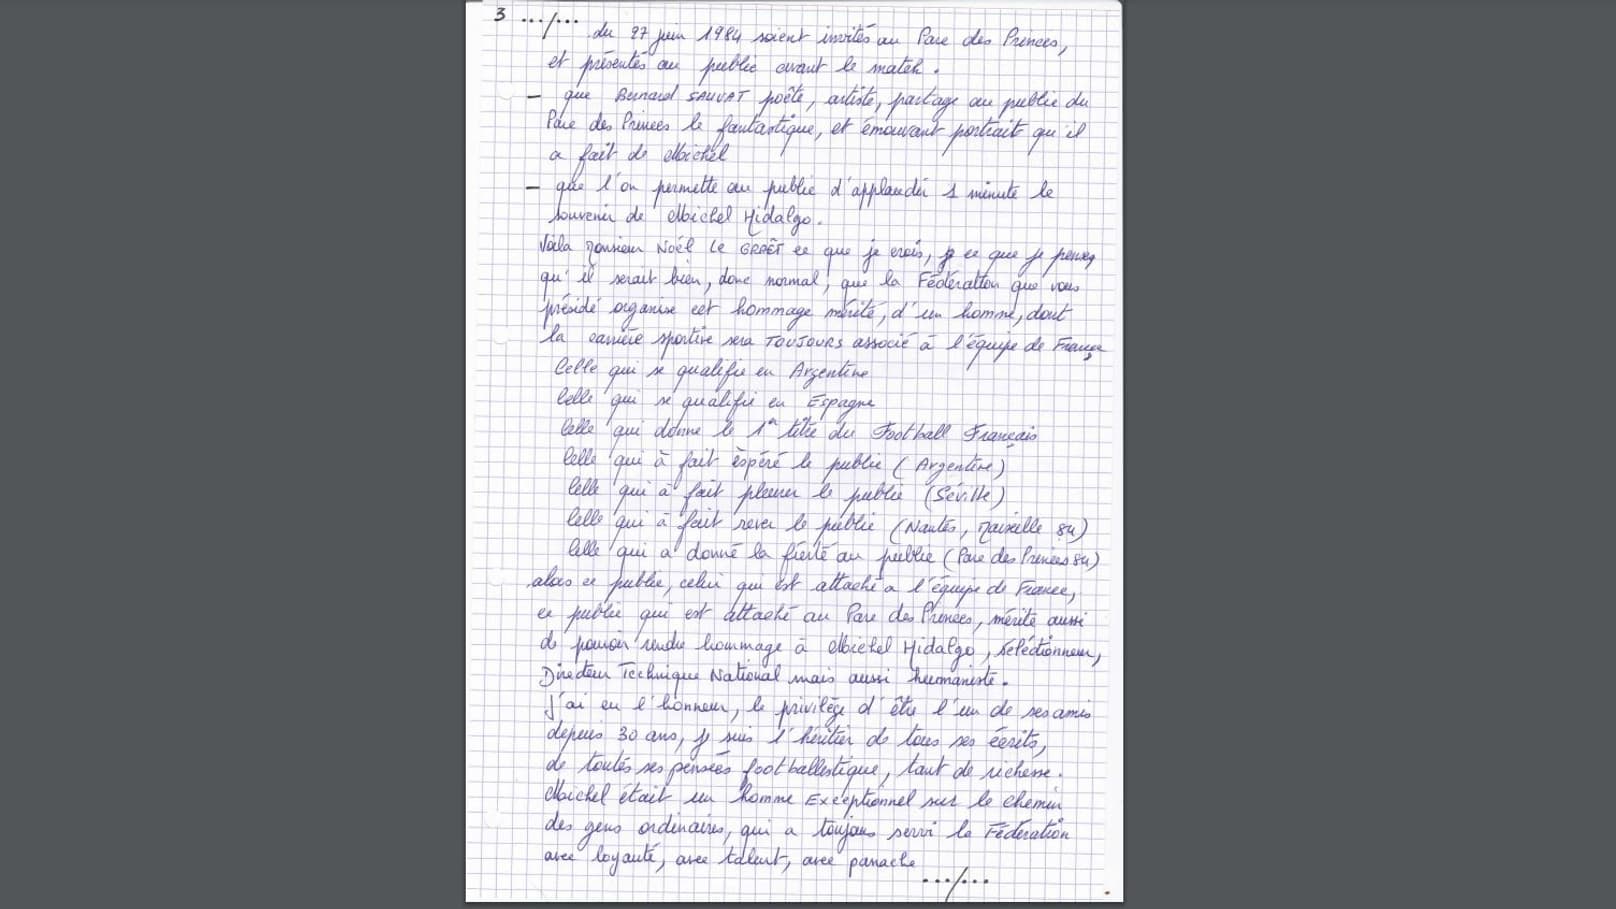 3 .../...
du 27 juin 1984 soient invités au Parc des Princes,
et présentés au public avant le match.
- que Bernard SAUVAT poète, artiste, partage au public du
Parc des Princes le fantastique, et émouvant portrait qu'il
a fait de Michel
- que l'on permette au public d'applaudir 1 minute le
souvenir de Michel Hidalgo.
Voila Monsieur Noël Le GRAËT ce que je crois, ce que je pense,
qu'il serait bien, donc normal, que la Fédération que vous
présidé organise cet hommage mérité, d'un homme, dont
la carrière sportive sera TOUJOURS associé à l'équipe de France,
Celle qui se qualifie en Argentine
Celle qui se qualifie en Espagne
Celle qui donne le 1er titre du Football Français
Celle qui à fait èspéré le public (Argentine)
Celle qui à fait pleurer le public (Séville)
Celle qui à fait rever le public (Nantes, Marseille 84)
Celle qui a donné la fierté au public (Parc des Princes 84)
alors ce public, celui qui est attaché a l'équipe de France,
ce public qui est attaché au Parc des Princes, mérite aussi
de pouvoir rendre hommage à Michel Hidalgo, Sélectionneur,
Directeur Technique National mais aussi humaniste.
J'ai eu l'honneur, le privilège d'être l'un de ses amis
depuis 30 ans, je suis l'héritier de tous ses écrits,
de toutes ses pensées footballestique, tant de richesse.
Michel était un homme Exceptionnel sur le chemin
des gens ordinaires, qui a toujours servi la Fédération
avec loyauté, avec talent, avec panache
.../...